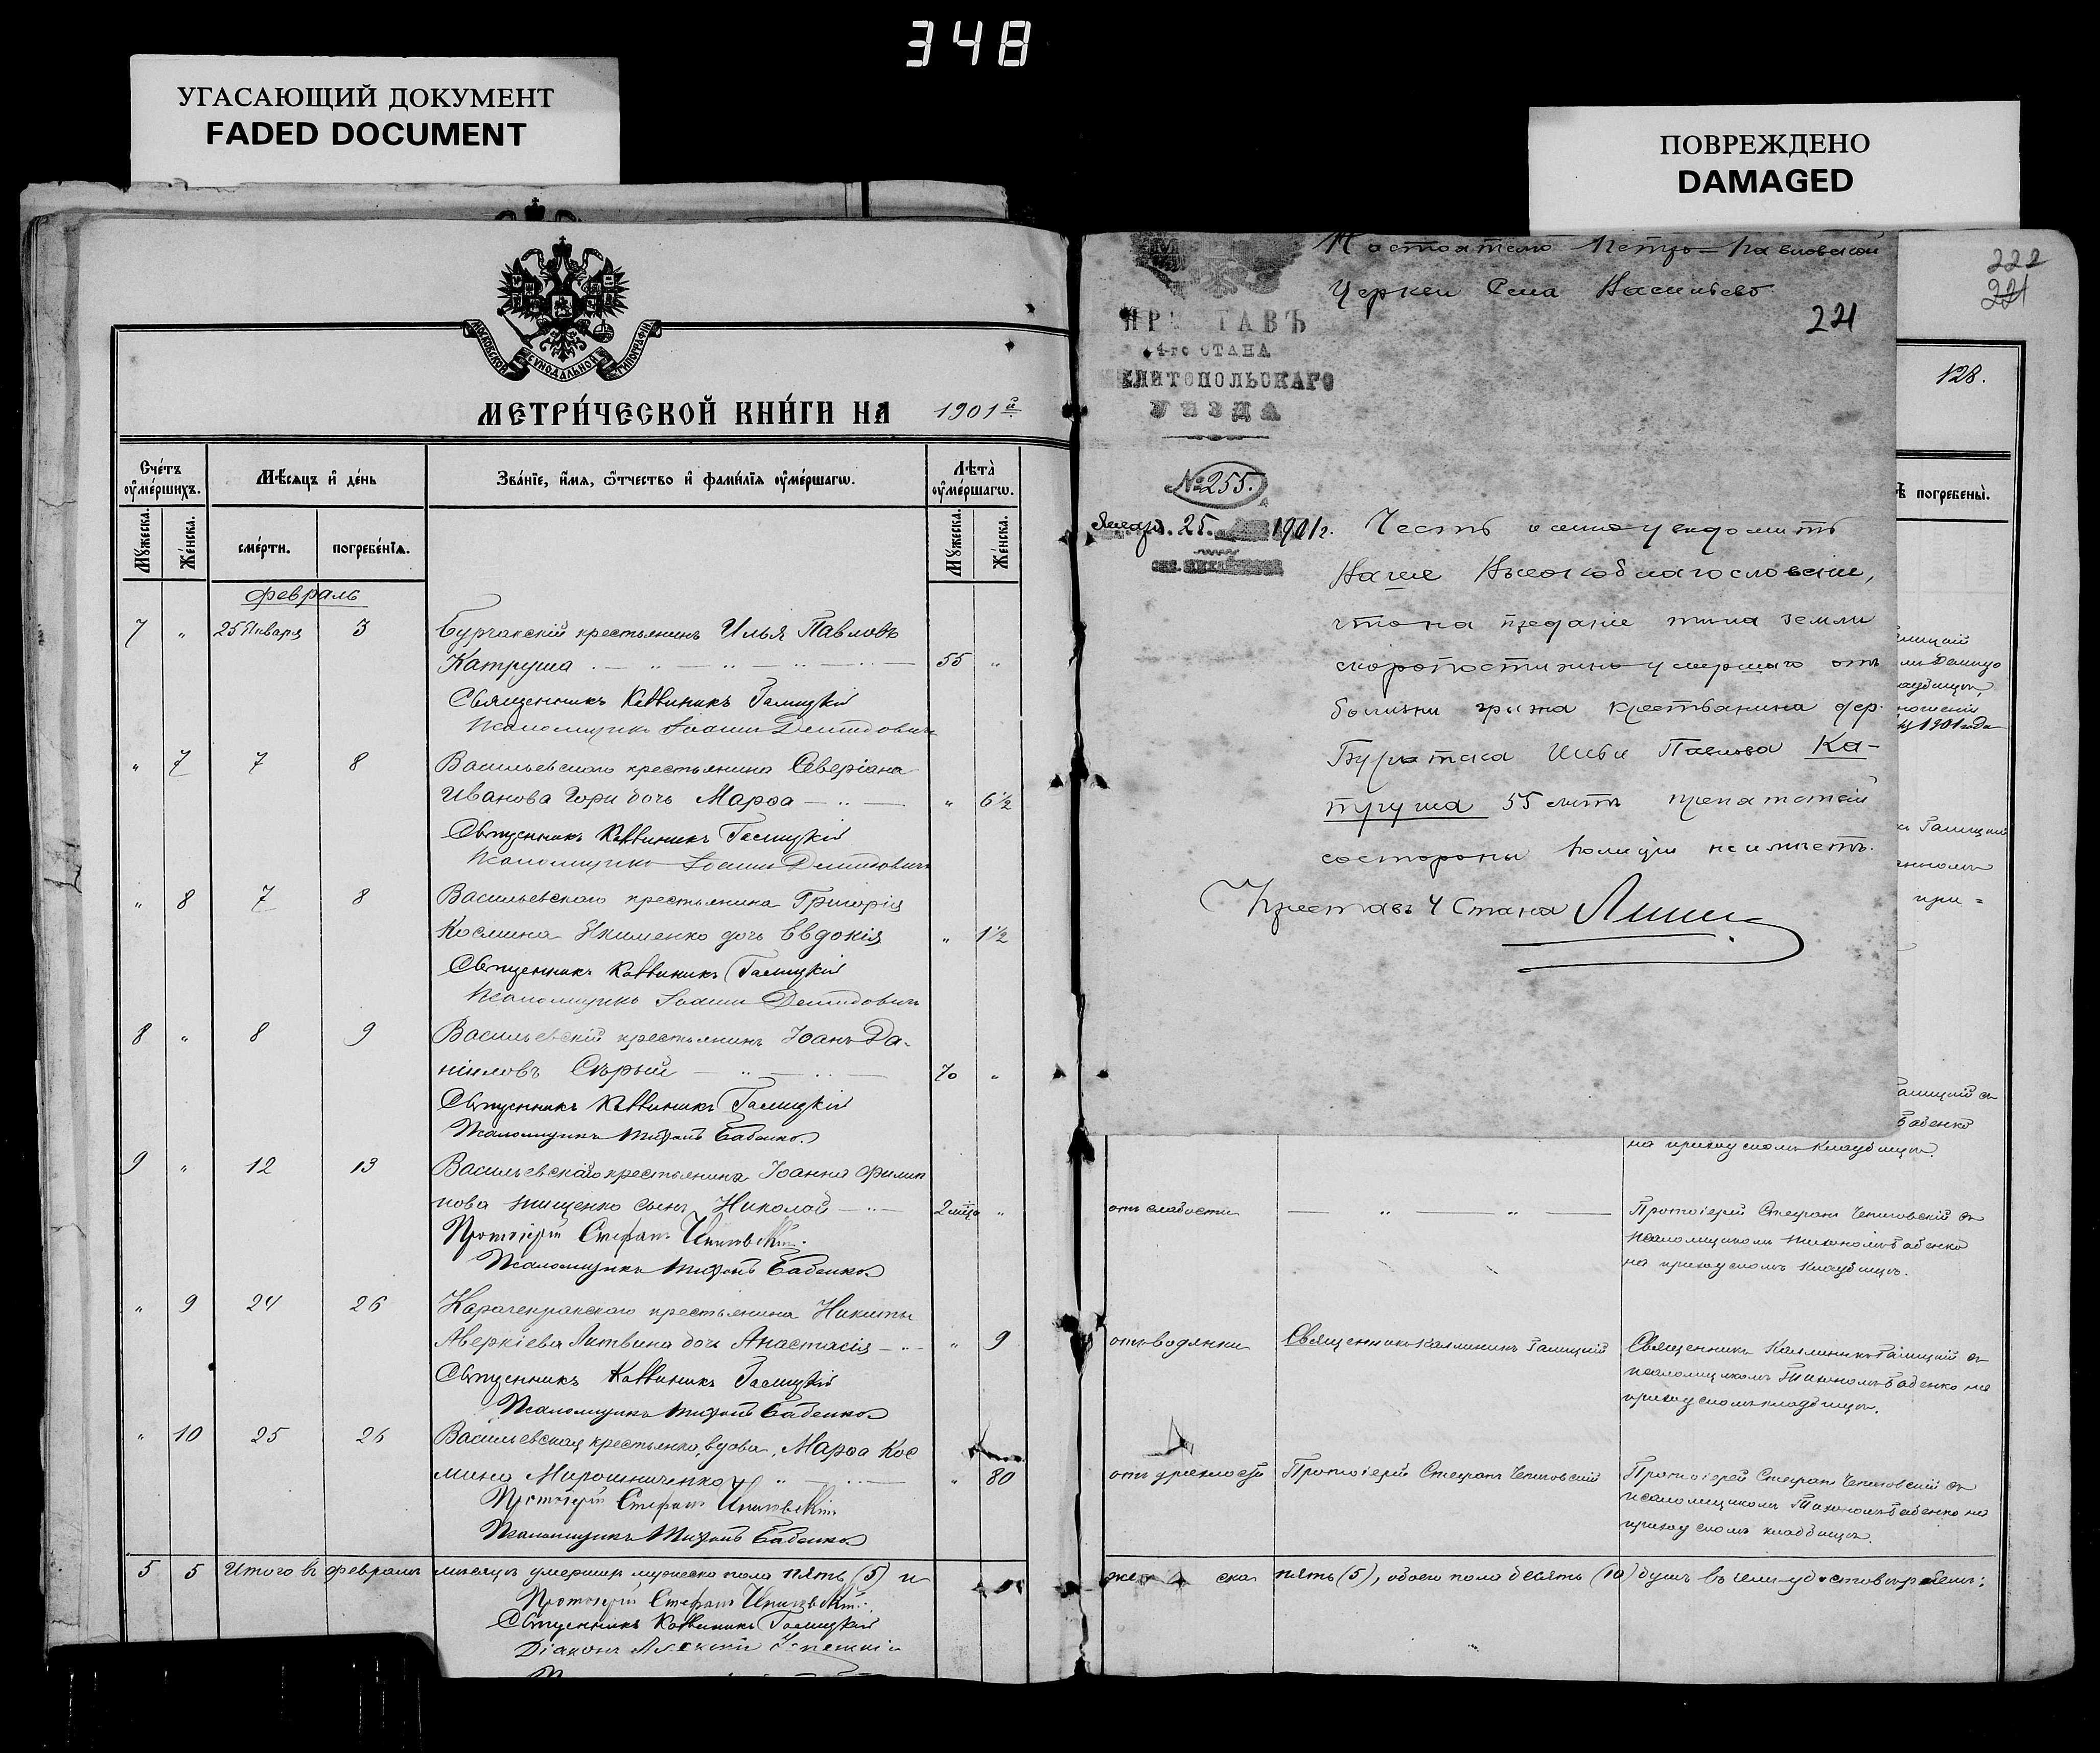 348
УГАСАЮЩИЙ ДОКУМЕНТ
FADED DOCUMENT
ПОВРЕЖДЕНО
DAMAGED
МОСКОВСКОЙ СѴНОДАЛЬНОЙ ТИПОГРАФІИ
МЕТРИ́ЧЕСКОЙ КНИ́ГИ НА 1901й
Счетъ оумершихъ.
Мѣсяцъ и день
Званіе, имя, отчество и фамилія оумершагѡ.
Лѣта оумершагѡ.
Мужеска.
Женска.
смерти.
погребенія.
Мужеска.
Женска.
февраль
7 " 25 Января 3 Бурчакскій крестьянинъ Илья Павловъ
Катруша 55 "
Священникъ Каллиникъ Галицкій
Псаломщикъ Іоаннъ Демидовичъ
" 7 7 8 Васильевскаго крестьянина Северіана
Иванова Гори дочь Марѳа " 6½
Священникъ Каллиникъ Галицкій
Псаломщикъ Іоаннъ Демидовичъ
" 8 7 8 Васильевскаго крестьянина Григорія
Космина Якименко дочь Евдокія " 1½
Священникъ Каллиникъ Галицкій
Псаломщикъ Іоаннъ Демидовичъ
8 " 8 9 Васильевскій крестьянинъ Іоанъ Да-
ніиловъ Сѣрый 70 "
Священникъ Каллиникъ Галицкій
Псаломщикъ Тихонъ Бабенко
9 " 12 13 Васильевскаго крестьянина Іоанна Филип
пова Тищенко сынъ Николай 2 мѣс "
Протоіерей Стефанъ
Псаломщикъ Тихонъ Бабенко
" 9 24 26 Карачекракскаго крестьянина Никиты
Аверкіева Литвина дочь Анастасія " 9
Священникъ Каллиникъ Галицкій
Псаломщикъ Тихонъ Бабенко
" 10 25 26 Васильевская крестьянка, вдова, Марѳа Кос
мина Мирошниченкова " 80
Протоіерей Стефанъ
Псаломщикъ Тихонъ Бабенко
5 5 Итого въ февралѣ мѣсяцѣ умершихъ мужеска пола пять (5) и
Протоіерей Стефанъ
Священникъ Каллиникъ Галицкій
Діаконъ
Настоятелю Петро-Павловской
Церкви Села Васильево
221
ПРИСТАВЪ
4-го СТАНА
МЕЛИТОПОЛЬСКАГО
УѢЗДА
№ 255.
Январ. 25. 1901 г.
Честь имею уведомить
Ваше Высокоблагословеніе,
что на преданіе тела земли
скоропостижно умершаго отъ
болезни грыжа крестьянина дер.
Ильи Павлова Ка-
труша 55 летъ препятствій
со стороны полиціи не имеетъ.
Приставъ 4 Стана
222
221
128.
погребены.
1901 года
на приходскомъ кладбищѣ.
отъ слабости Протоіерей Стефанъ съ
псаломщикомъ Тихономъ Бабенко
на приходскомъ кладбищѣ.
отъ водянки Священникъ Каллиникъ Галицкій Священникъ Каллиникъ Галицкій съ
псаломщикомъ Тихономъ Бабенко на
приходскомъ кладбищѣ.
отъ дряхлости Протоіерей Стефанъ Протоіерей Стефанъ съ
псаломщикомъ Тихономъ Бабенко на
приходскомъ кладбищѣ.
женска пять (5), обоего пола десять (10) душъ въ чемъ удостовѣряемъ: